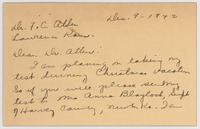 Dec. 9 - 1942
Dr. F. C. Allen
Lawrence Kans.
Dear Dr. Allen:
I am planning on taking my
test during Christmas vacation
So if you will please send my
test to Mrs. Anna Blaylock, Supt
of Harvey County, Newton, Ks.